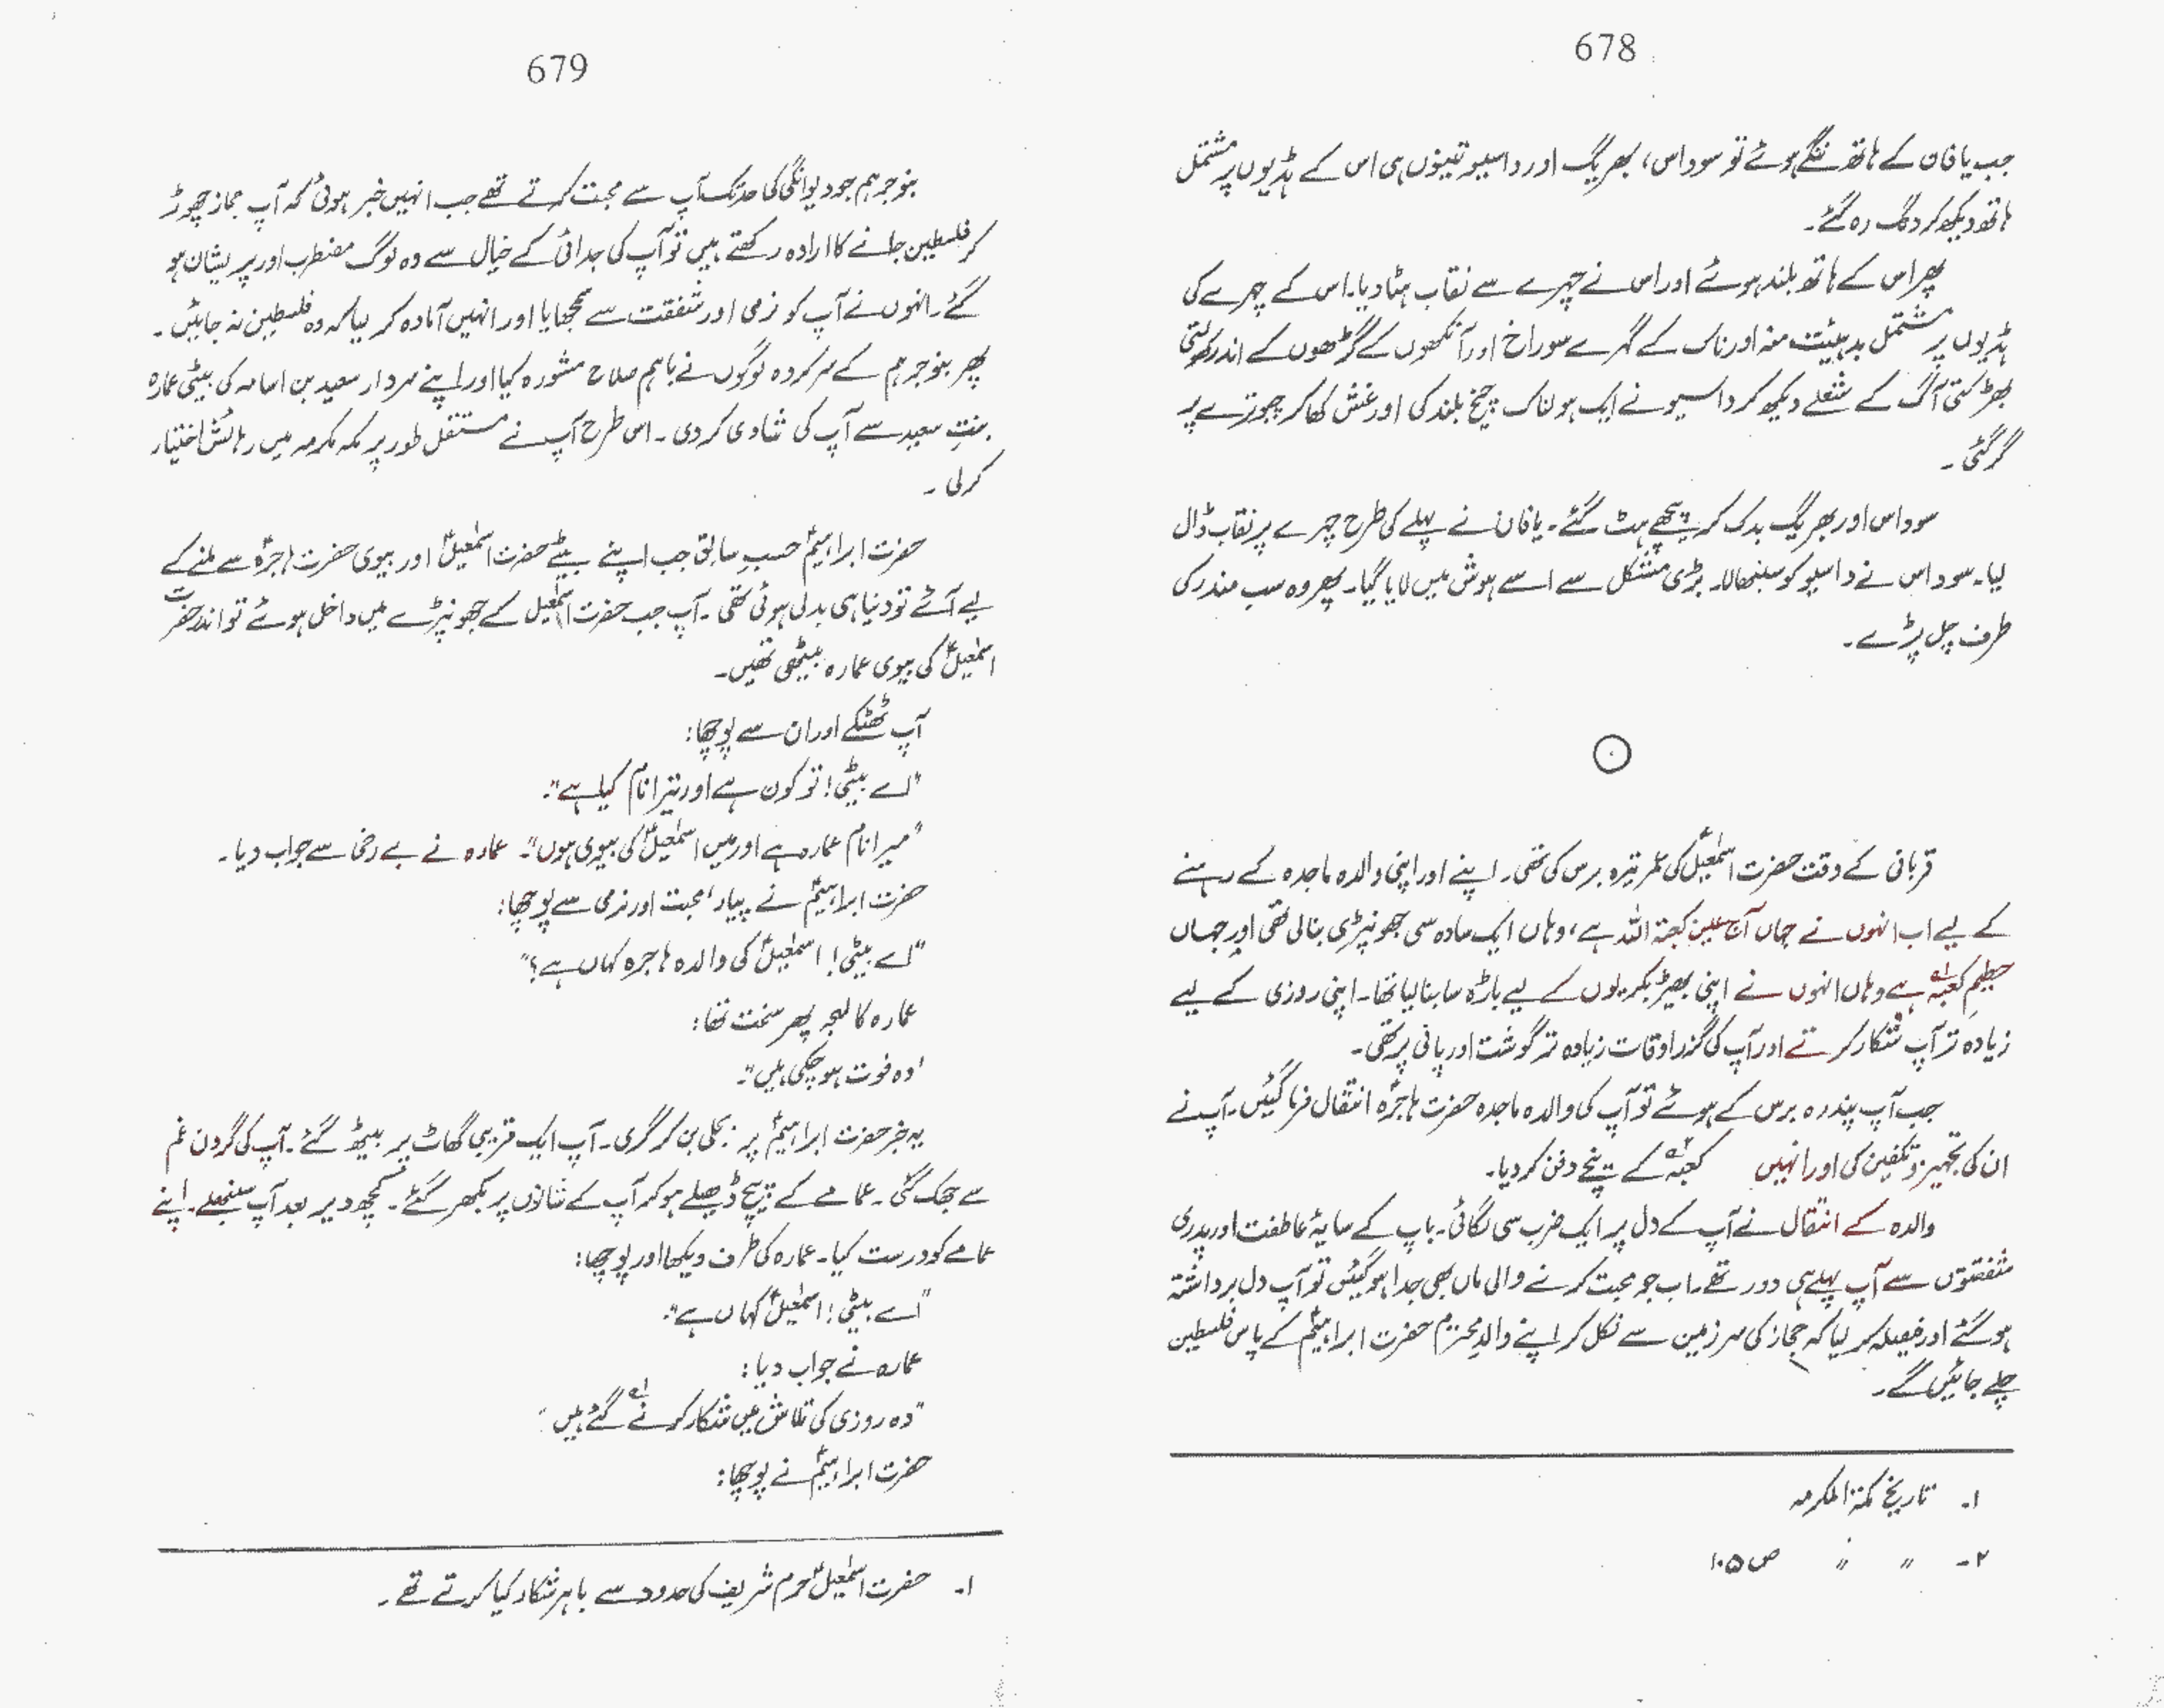 678
جب یافان کے ہاتھ ننگے ہوئے تو سوداس، بھریگ اور داسیو تینوں ہی اس کے ہڈیوں پر مشتمل
ہاتھ دیکھ کر دنگ رہ گئے۔
پھر اس کے ہاتھ بلند ہوئے اور اس نے چہرے سے نقاب ہٹا دیا۔ اس کے چہرے کی
ہڈیوں پر مشتمل بد ہیئت منہ اور ناک کے گہرے سوراخ اور آنکھوں کے گڑھوں کے اندر
بھڑکتی آگ کے شعلے دیکھ کر داسیو نے ایک ہولناک چیخ بلند کی اور غش کھا کر چبوترے پر
گر گئی۔
سوداس اور بھریگ بدک کر پیچھے ہٹ گئے۔ یافان نے پہلے کی طرح چہرے پر نقاب ڈال
لیا۔ سوداس نے داسیو کو سنبھالا۔ بڑی مشکل سے اسے ہوش میں لایا گیا۔ پھر وہ سب مندر کی
طرف چل پڑے۔
قربانی کے وقت حضرت اسمٰعیلؑ کی عمر تیرہ برس کی تھی۔ اپنے اور اپنی والدہ ماجدہ کے رہنے
کے لیے اب انہوں نے جہاں آج عین کعبۃ اللہ ہے، وہاں ایک سادہ سی جھونپڑی بنا لی تھی اور جہاں
حطیمِ کعبہ۱؎ ہے وہاں انہوں نے اپنی بھیڑ بکریوں کے لیے باڑہ سا بنا لیا تھا۔ اپنی روزی کے لیے
زیادہ تر آپ شکار کرتے اور آپ کی گزر اوقات زیادہ تر گوشت اور پانی پر تھی۔
جب آپ پندرہ برس کے ہوئے تو آپ کی والدہ ماجدہ حضرت ہاجرہؑ انتقال فرما گئیں۔ آپ نے
ان کی تجہیز و تکفین کی اور انہیں کعبہ۲؎ کے نیچے دفن کر دیا۔
والدہ کے انتقال نے آپ کے دل پر ایک ضرب سی لگائی۔ باپ کے سایۂ عاطفت اور پدری
شفقتوں سے آپ پہلے ہی دور تھے۔ اب جو محبت کرنے والی ماں بھی جدا ہو گئیں تو آپ دل برداشتہ
ہو گئے اور فیصلہ کر لیا کہ حجاز کی سرزمین سے نکل کر اپنے والدِ محترم حضرت ابراہیمؑ کے پاس فلسطین
چلے جائیں گے۔
۱۔ تاریخ مکۃ المکرمہ
۲۔ " " " ص ۱۰۵
679
بنو جرہم جو دیوانگی کی حد تک آپ سے محبت کرتے تھے جب انہیں خبر ہوئی کہ آپ حجاز چھوڑ
کر فلسطین جانے کا ارادہ رکھتے ہیں تو آپ کی جدائی کے خیال سے وہ لوگ مضطرب اور پریشان ہو
گئے۔ انہوں نے آپ کو نرمی اور شفقت سے سمجھایا اور انہیں آمادہ کر لیا کہ وہ فلسطین نہ جائیں۔
پھر بنو جرہم کے سرکردہ لوگوں نے باہم صلاح مشورہ کیا اور اپنے سردار سعید بن اسامہ کی بیٹی عمارہ
بنتِ سعید سے آپ کی شادی کر دی۔ اس طرح آپ نے مستقل طور پر مکہ مکرمہ میں رہائش اختیار
کر لی۔
حضرت ابراہیمؑ حسبِ سابق جب اپنے بیٹے حضرت اسمٰعیلؑ اور بیوی حضرت ہاجرہؑ سے ملنے کے
لیے آئے تو دنیا ہی بدلی ہوئی تھی۔ آپ جب حضرت اسمٰعیل کے جھونپڑے میں داخل ہوئے تو اندر حضرت
اسمٰعیلؑ کی بیوی عمارہ بیٹھی تھیں۔
آپ ٹھٹکے اور ان سے پوچھا:
"اے بیٹی! تو کون ہے اور تیرا نام کیا ہے"۔
"میرا نام عمارہ ہے اور میں اسمٰعیلؑ کی بیوی ہوں"۔ عمارہ نے بے رخی سے جواب دیا۔
حضرت ابراہیمؑ نے پیار، محبت اور نرمی سے پوچھا:
"اے بیٹی! اسمٰعیلؑ کی والدہ ہاجرہ کہاں ہے؟"
عمارہ کا لہجہ پھر سخت تھا:
"وہ فوت ہو چکی ہیں"۔
یہ خبر حضرت ابراہیمؑ پر بجلی بن کر گری۔ آپ ایک قریبی گھاٹ پر بیٹھ گئے۔ آپ کی گردن غم
سے جھک گئی۔ عمامے کے پیچ ڈھیلے ہو کر آپ کے شانوں پر بکھر گئے۔ کچھ دیر بعد آپ سنبھلے۔ اپنے
عمامے کو درست کیا۔ عمارہ کی طرف دیکھا اور پوچھا:
"اے بیٹی! اسمٰعیلؑ کہاں ہے"۔
عمارہ نے جواب دیا:
"وہ روزی کی تلاش میں شکار کرنے۱؎ گئے ہیں"
حضرت ابراہیمؑ نے پوچھا:
۱۔ حضرت اسمٰعیلؑ حرم شریف کی حدود سے باہر شکار کیا کرتے تھے۔